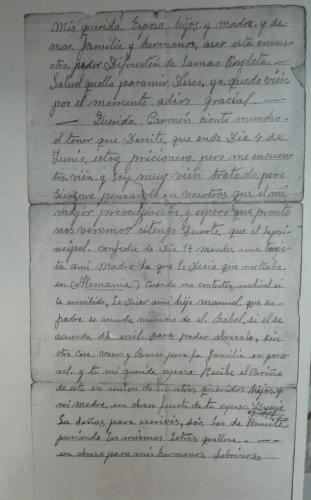 Mis querida Esposa hijos, y madre, y de
mar, familia y hermanos, aser esta en vues-
poder Disfruten de Lamas Completa
Salud quella para mi Deseo, yo. quedo vién
por el momento adios gracias. —
— Querida. Carmén siento mucho.
el tener que Desirte, que ende Dia 4 de
Junio, estoy pricionero, pero me encuen
tro. vién. y Soy muy vién tratado, pero
siempre pensando en vosotros que el mi
mayor preocupación, y espero que pronto
nos veremos suerte. que el
prin
cipal. con fecha de Dia 14 mandes una tarje
ta ami Madre La que le Decia que
en (Alemania) Cuando me contestes si
la arecibido, Le Diser ami hijo manuel. que su
padre se acuerda mucho de el. si el se
acuerda de mi. para poder abrasarlo, sin
otra Cosa Vesos y Brasos para la familia en gene
ral. y tu mi querida esposa Recibe el Cariño
de este en unión de nuestros queridos hijos y
mi madre, un abraso fuerte de tu esposo
La señas para escrivir, son las de Remite
poniendo las mismas Letras
un abraso para mis hermanos Sobrinos